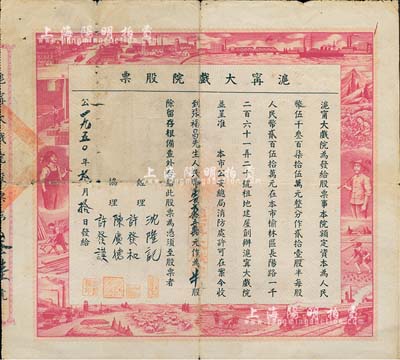 上海陽明拍賣
滬甯大戲院股票
滬甯大戲院為發給股票事本院額定資本為人民
幣伍千叁百柒拾伍萬元整分作貳拾壹股半每股
人民幣貳百伍拾萬元在本市榆林區長陽路一千
二百六十一弄二十號租地建屋創辦滬甯大戲院
並呈准 本市公安總局消防處許可在案今收
到張福昌先生人民幣 萬元作為半股
除留存根備查外 此股票為憑須至股票者
經理 沈陞記
許發和
協理 陳廣德
許發護
公一九五〇年 月拾日發給